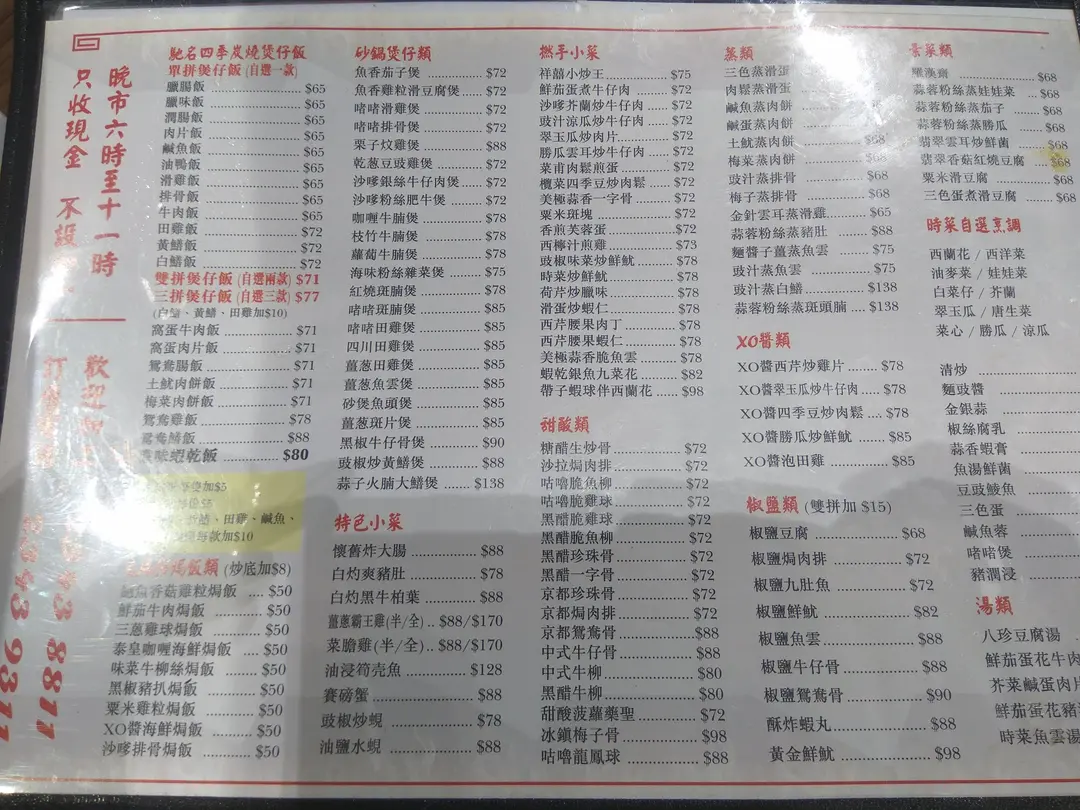 晚市六時至十一時
只收現金 不設
歡迎
8811
9311
馳名四季炭燒煲仔飯
單拼煲仔飯 (自選一款)
臘腸飯 $65
臘味飯 $65
潤腸飯 $65
肉片飯 $65
鹹魚飯 $65
油鴨飯 $65
滑雞飯 $65
排骨飯 $65
牛肉飯 $65
田雞飯 $72
黃鱔飯 $72
白鱔飯 $72
雙拼煲仔飯 (自選兩款) $71
三拼煲仔飯 (自選三款) $77
(白鱔、黃鱔、田雞加$10)
窩蛋牛肉飯 $71
窩蛋肉片飯 $71
鴛鴦腸飯 $71
土魷肉餅飯 $71
梅菜肉餅飯 $71
鴛鴦雞飯 $78
鴛鴦鱔飯 $88
味蝦乾飯 $80
加$5
、田雞、鹹魚、
每款加$10
焗飯類 (炒底加$8)
鮑魚香菇雞粒焗飯 $50
鮮茄牛肉焗飯 $50
三蔥雞球焗飯 $50
泰皇咖喱海鮮焗飯 $50
味菜牛柳絲焗飯 $50
黑椒豬扒焗飯 $50
粟米雞粒焗飯 $50
XO醬海鮮焗飯 $50
沙嗲排骨焗飯 $50
砂鍋煲仔類
魚香茄子煲 $72
魚香雞粒滑豆腐煲 $72
啫啫滑雞煲 $72
啫啫排骨煲 $72
栗子炆雞煲 $88
乾蔥豆豉雞煲 $72
沙嗲銀絲牛仔肉煲 $72
沙嗲粉絲肥牛煲 $72
咖喱牛腩煲 $78
枝竹牛腩煲 $78
蘿蔔牛腩煲 $78
海味粉絲雜菜煲 $75
紅燒斑腩煲 $78
啫啫斑腩煲 $85
啫啫田雞煲 $85
四川田雞煲 $85
薑蔥田雞煲 $85
薑蔥魚雲煲 $85
砂煲魚頭煲 $85
薑蔥斑片煲 $85
黑椒牛仔骨煲 $90
豉椒炒黃鱔煲 $88
蒜子火腩大鱔煲 $138
特色小菜
懷舊炸大腸 $88
白灼爽豬肚 $78
白灼黑牛柏葉 $88
薑蔥霸王雞(半/全) $88/$170
菜膽雞(半/全) $88/$170
油浸筍壳魚 $128
賽磅蟹 $88
豉椒炒蜆 $78
油鹽水蜆 $88
撚手小菜
祥囍小炒王 $75
鮮茄蛋煮牛仔肉 $72
沙嗲芥蘭炒牛仔肉 $72
豉汁涼瓜炒牛仔肉 $72
翠玉瓜炒肉片 $72
勝瓜雲耳炒牛仔肉 $72
菜甫肉鬆煎蛋 $72
欖菜四季豆炒肉鬆 $72
美極蒜香一字骨 $72
粟米斑塊 $72
香煎芙蓉蛋 $72
西檸汁煎雞 $73
豉椒味菜炒鮮魷 $78
時菜炒鮮魷 $78
荷芹炒臘味 $78
滑蛋炒蝦仁 $78
西芹腰果肉丁 $78
西芹腰果蝦仁 $78
美極蒜香脆魚雲 $78
蝦乾銀魚九菜花 $82
帶子蝦球伴西蘭花 $98
甜酸類
糖醋生炒骨 $72
沙拉焗肉排 $72
咕嚕脆魚柳 $72
咕嚕脆雞球 $72
黑醋脆雞球 $72
黑醋脆魚柳 $72
黑醋珍珠骨 $72
黑醋一字骨 $72
京都珍珠骨 $72
京都焗肉排 $72
京都鴛鴦骨 $88
中式牛仔骨 $88
中式牛柳 $80
黑醋牛柳 $80
甜酸菠蘿藥聖 $72
冰鎮梅子骨 $98
咕嚕龍鳳球 $88
蒸類
三色蒸滑蛋
肉鬆蒸滑蛋
鹹魚蒸肉餅
鹹蛋蒸肉餅
土魷蒸肉餅 $68
梅菜蒸肉餅 $68
豉汁蒸排骨 $68
梅子蒸排骨 $68
金針雲耳蒸滑雞 $65
蒜蓉粉絲蒸豬肚 $88
麵醬子薑蒸魚雲 $75
豉汁蒸魚雲 $75
豉汁蒸白鱔 $138
蒜蓉粉絲蒸斑頭腩 $138
XO醬類
XO醬西芹炒雞片 $78
XO醬翠玉瓜炒牛仔肉 $78
XO醬四季豆炒肉鬆 $78
XO醬勝瓜炒鮮魷 $85
XO醬泡田雞 $85
椒鹽類 (雙拼加 $15)
椒鹽豆腐 $68
椒鹽焗肉排 $72
椒鹽九肚魚 $72
椒鹽鮮魷 $82
椒鹽魚雲 $88
椒鹽牛仔骨 $88
椒鹽鴛鴦骨 $90
酥炸蝦丸 $88
黃金鮮魷 $98
素菜類
羅漢齋 $68
蒜蓉粉絲蒸娃娃菜 $68
蒜蓉粉絲蒸茄子 $68
蒜蓉粉絲蒸勝瓜 $68
翡翠雲耳炒鮮菌 $68
翡翠香菇紅燒豆腐 $68
粟米滑豆腐 $68
三色蛋煮滑豆腐 $68
時菜自選烹調
西蘭花 / 西洋菜
油麥菜 / 娃娃菜
白菜仔 / 芥蘭
翠玉瓜 / 唐生菜
菜心 / 勝瓜 / 涼瓜
清炒
麵豉醬
金銀蒜
椒絲腐乳
蒜香蝦膏
魚湯鮮菌
豆豉鯪魚
三色蛋
鹹魚蓉
啫啫煲
豬潤浸
湯類
八珍豆腐湯
鮮茄蛋花牛肉
芥菜鹹蛋肉片
鮮茄蛋花豬
時菜魚雲湯